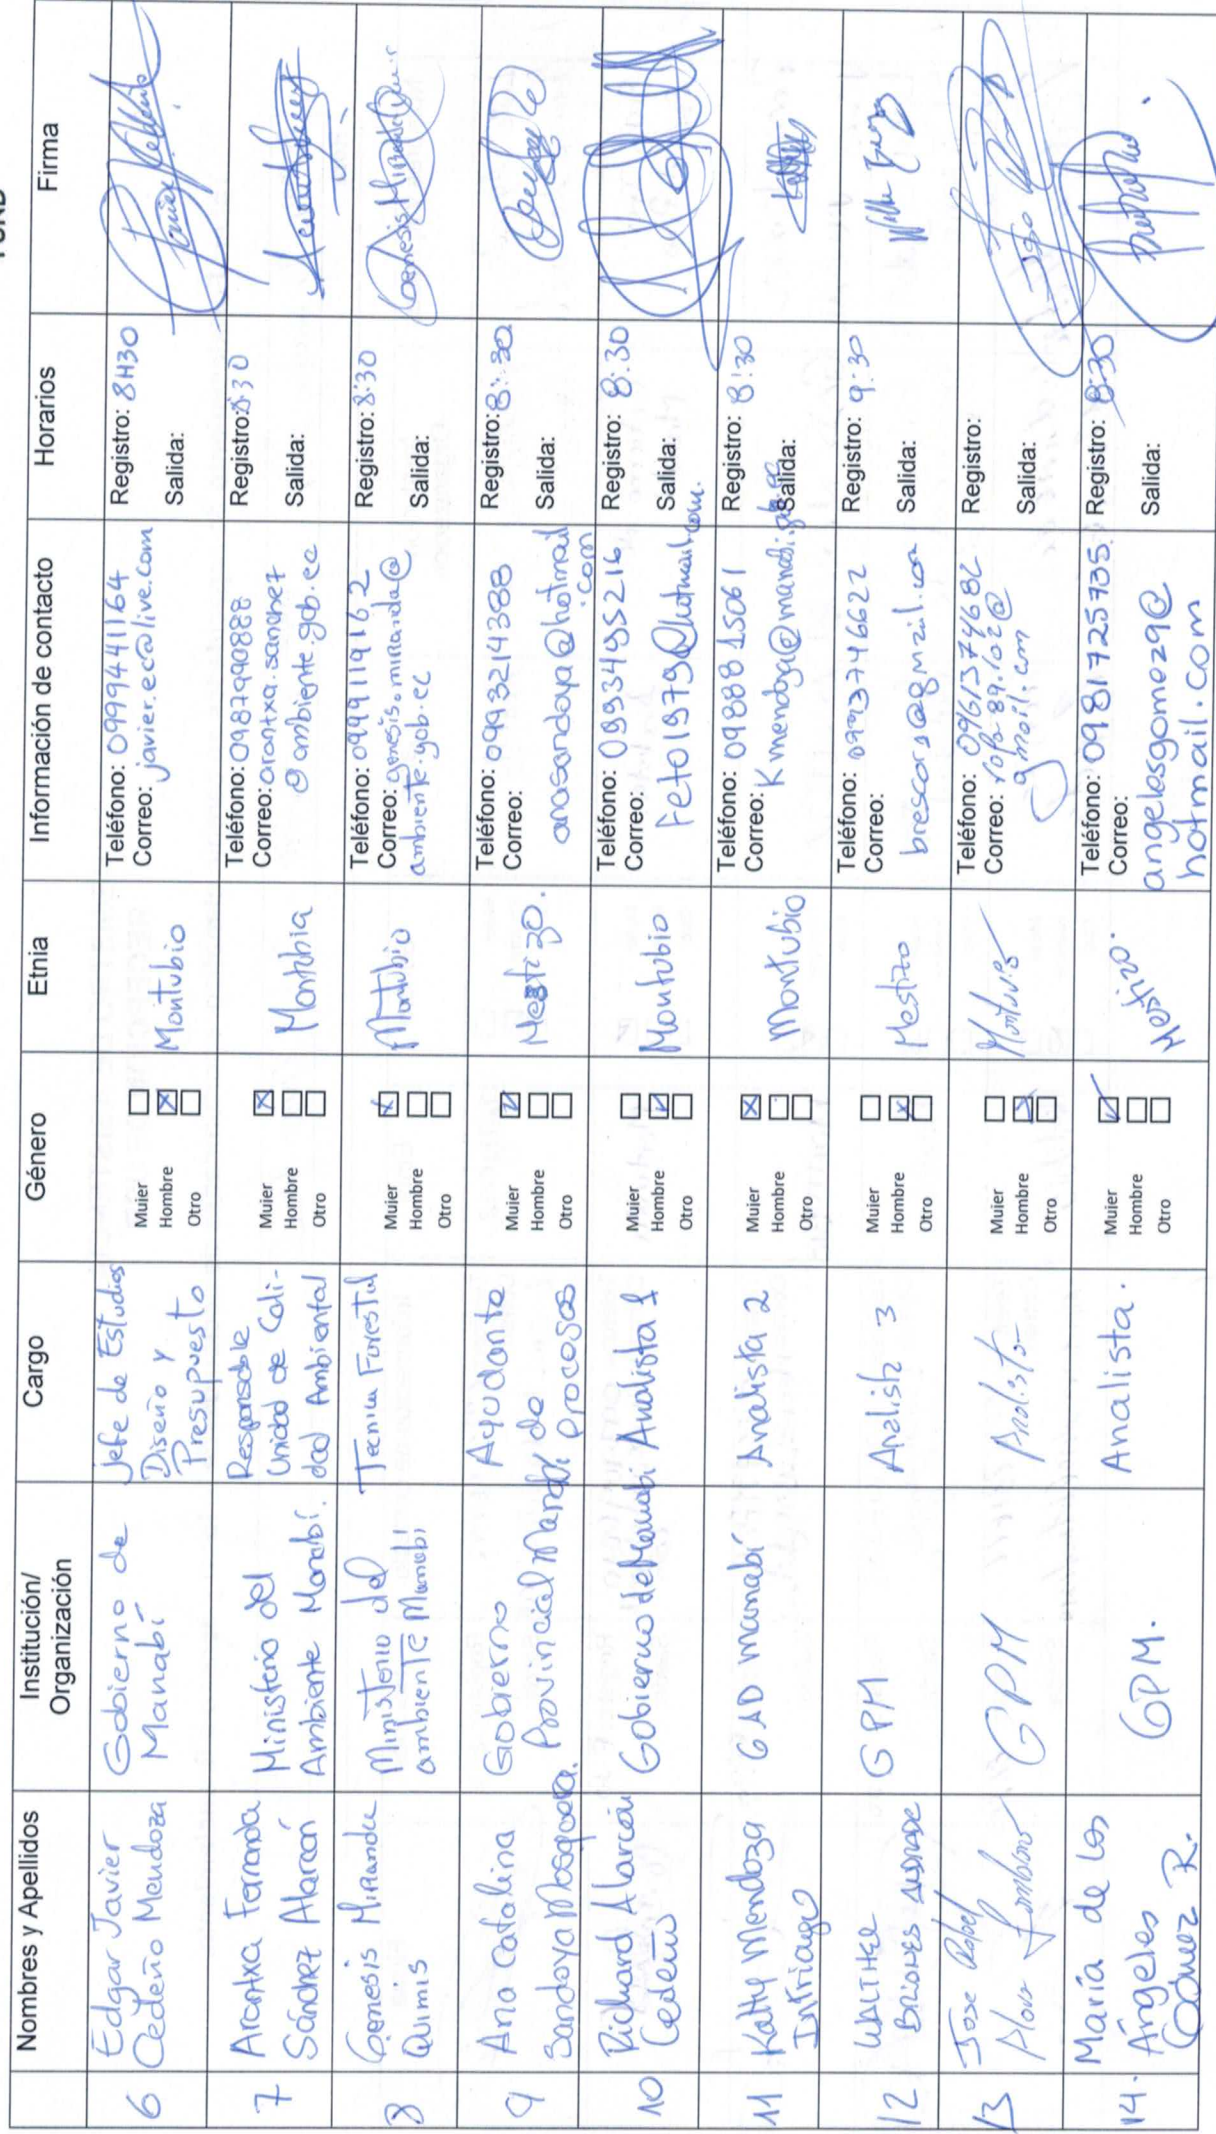 Nombres y Apellidos
Institución/
Organización
Cargo
Género
Etnia
Información de contacto
Horarios
Firma
6
Edgar Javier
Cedeño Mendoza
Gobierno de
Manabí
Jefe de Estudios
Diseño y
Presupuesto
Mujer
Hombre
Otro
Montubio
Teléfono: 0999441164
Correo: javier.ec@live.com
Registro: 8H30
Salida:
7
Arantxa Fernanda
Sánchez Alarcón
Ministerio del
Ambiente Manabí.
Responsable
Unidad de Cali-
dad Ambiental
Mujer
Hombre
Otro
Montubia
Teléfono: 0987990888
Correo: arantxa.sanchez
@ambiente.gob.ec
Registro: 8:30
Salida:
8
Genesis Miranda
Quimis
Ministerio del
ambiente Manabí
Tecnica Forestal
Mujer
Hombre
Otro
Montubio
Teléfono: 0999119162
Correo: genesis.miranda@
ambiente.gob.ec
Registro: 8:30
Salida:
Genesis Miranda
9
Ana Catalina
Sandoya Mosquera.
Gobierno
Provincial Manabí
Ayudante
de
procesos
Mujer
Hombre
Otro
Mestizo.
Teléfono: 0993214388
Correo:
anasandoya@hotmail
.com
Registro: 8:30
Salida:
10
Richard Alarcón
Cedeño
Gobierno de Manabí
Analista 1
Mujer
Hombre
Otro
Montubio
Teléfono: 0993495216
Correo:
Feto1979@hotmail.com.
Registro: 8:30
Salida:
11
Katty Mendoza
Intriago
GAD manabí
Analista 2
Mujer
Hombre
Otro
Montubio
Teléfono: 0988815061
Correo: Kmendoza@manabi.gob.ec
Registro: 8:30
Salida:
12
WALTHER
BRIONES ANDRADE
GPM
Analista 3
Mujer
Hombre
Otro
Mestizo
Teléfono: 0993746622
Correo:
brescor1@gmail.com
Registro: 9:30
Salida:
13
Jose Rafael
GPM
Analista
Mujer
Hombre
Otro
Teléfono: 0961374682
Correo:
gmail.com
Registro:
Salida:
14.
María de los
Ángeles
Gómez R.
GPM.
Analista.
Mujer
Hombre
Otro
Mestizo.
Teléfono: 0981725735
Correo:
angelesgomez9@
hotmail.com
Registro: 8:30
Salida: